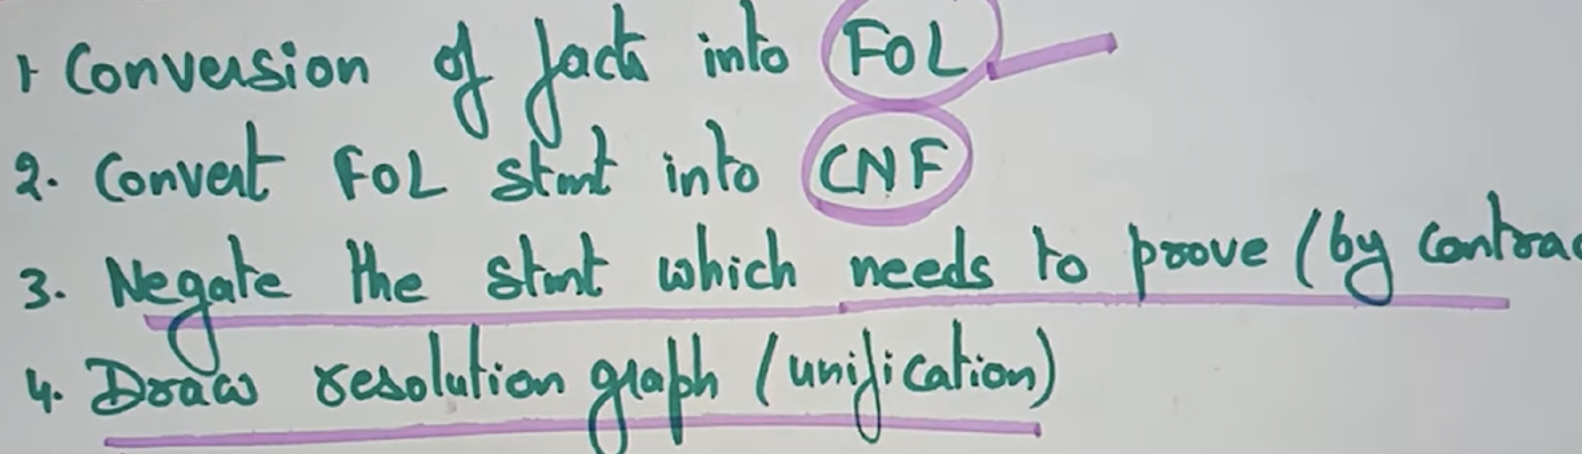 1. Conversion of facts into FOL
2. Convert FOL stmt into CNF
3. Negate the stmt which needs to prove (by contrac
4. Draw resolution graph (unification)